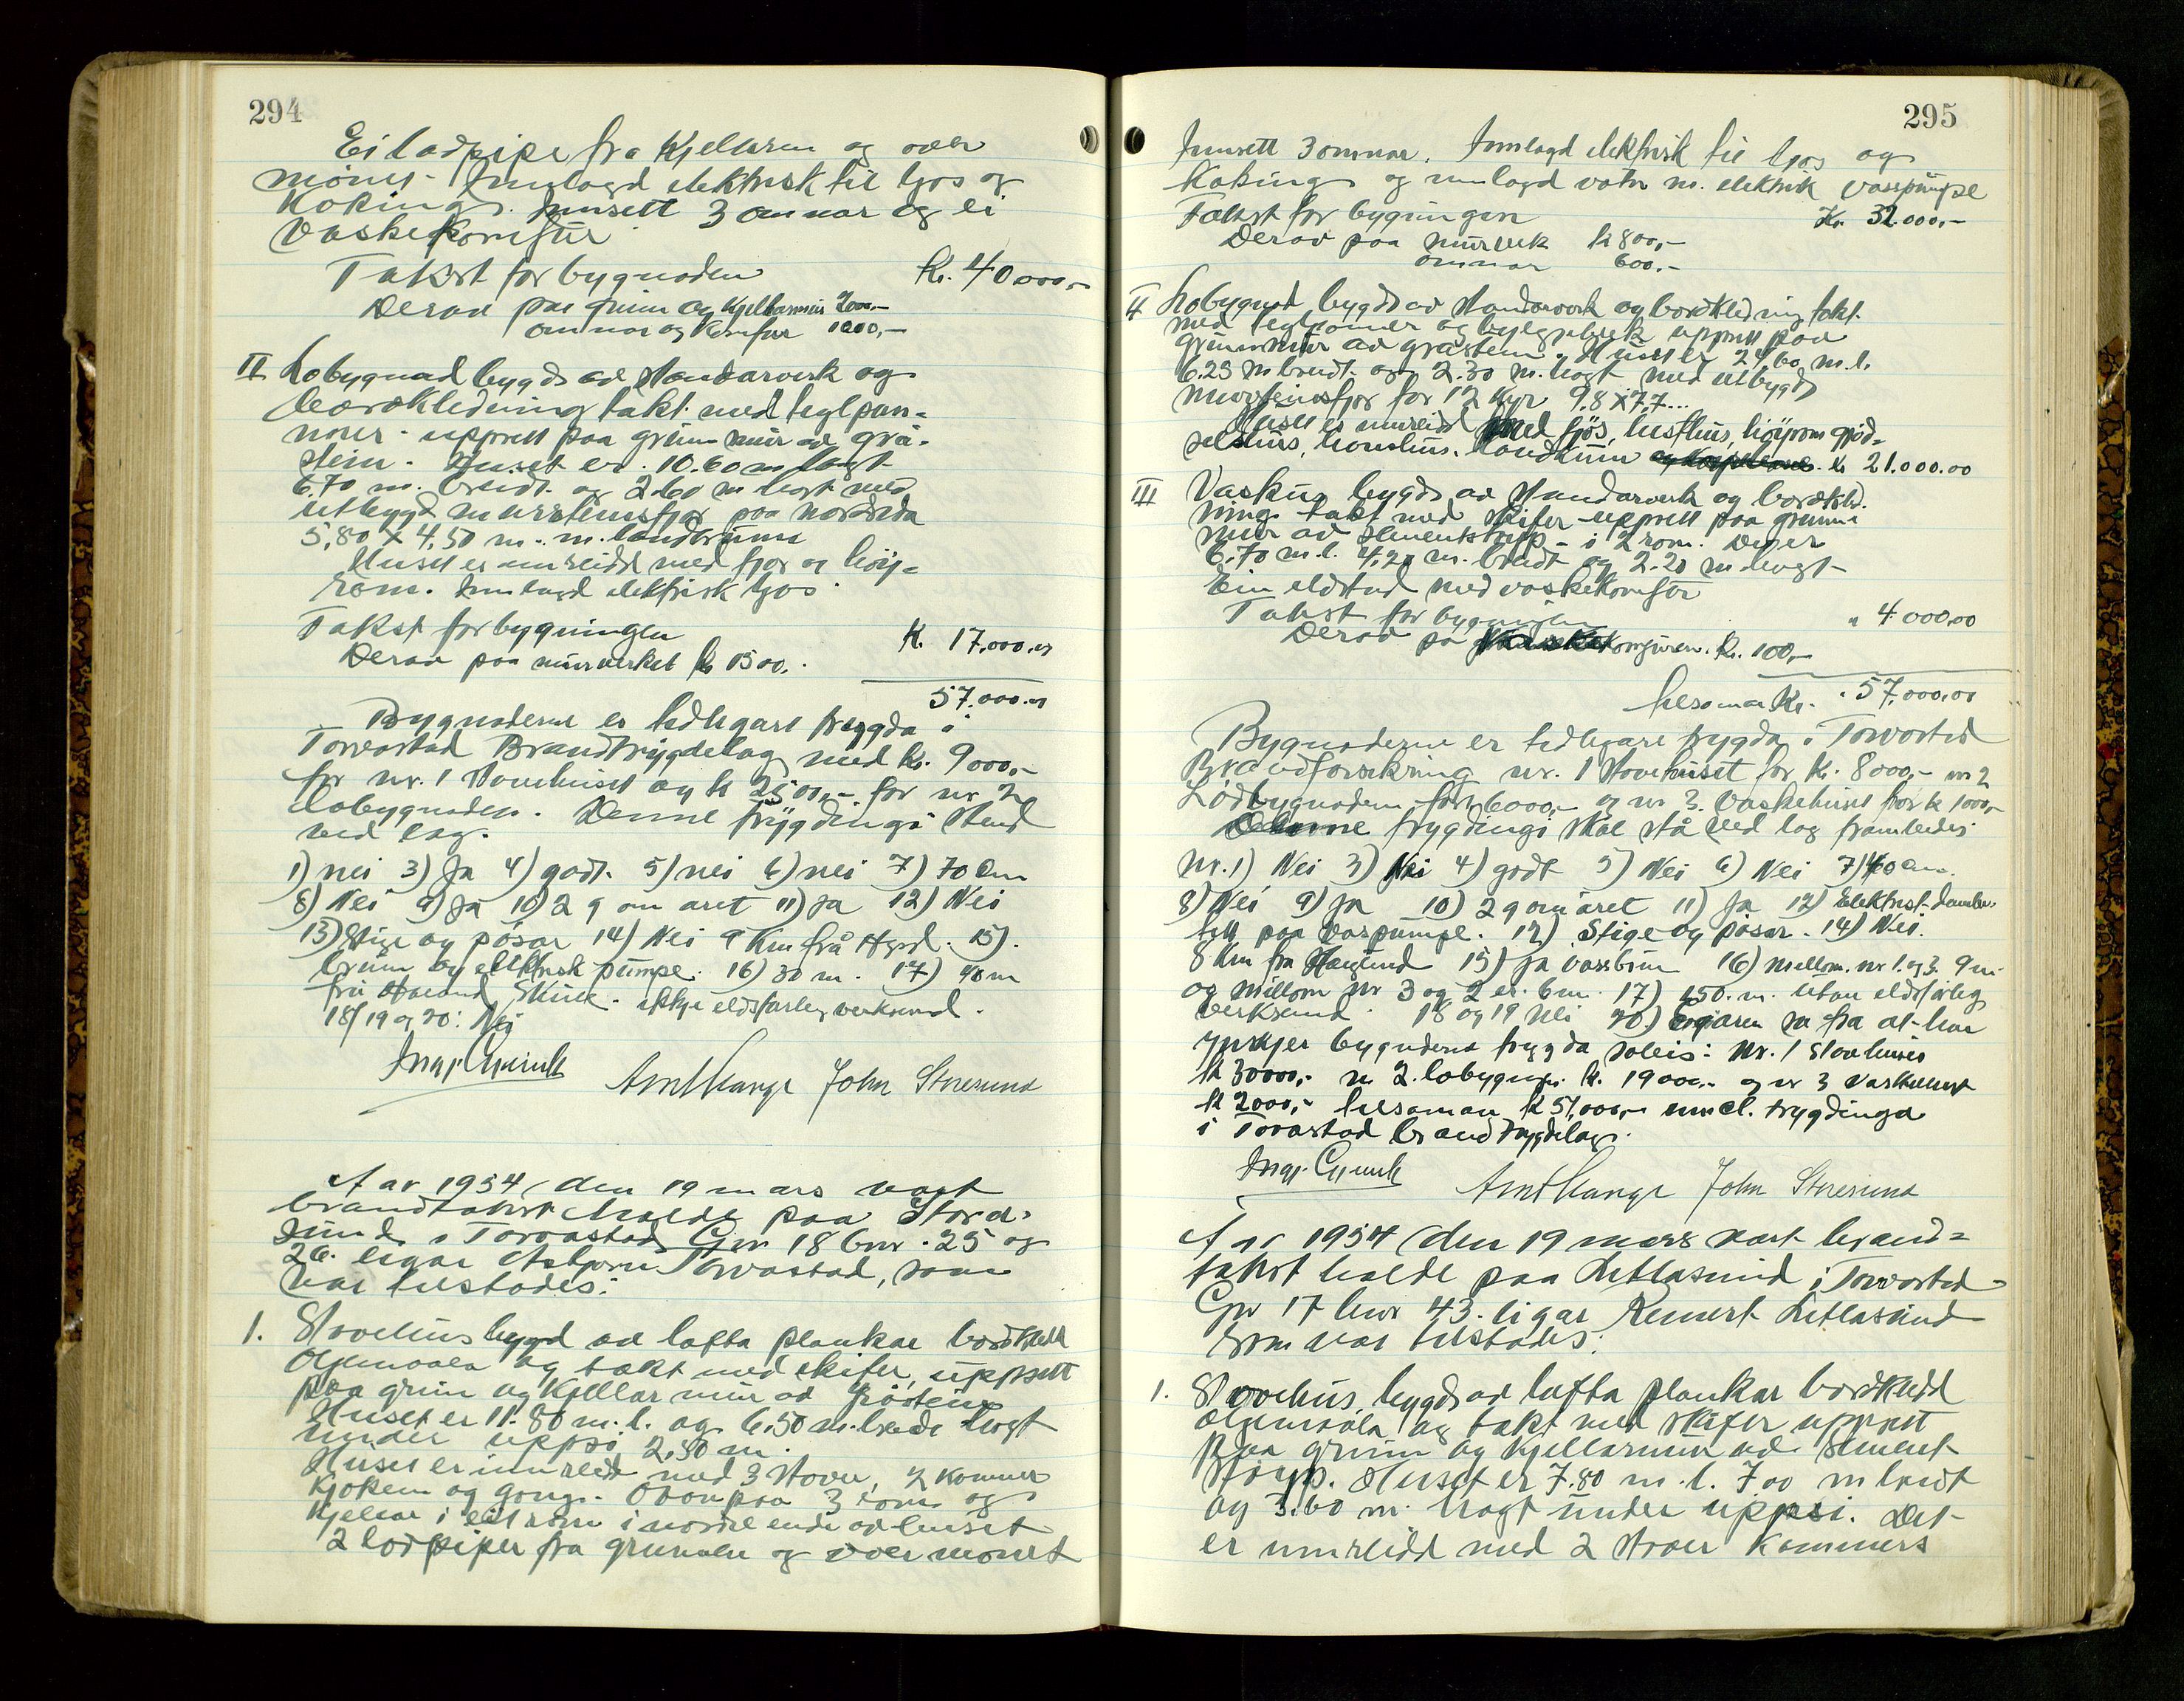 294
Ei lødpipe fra Kjellaren og over
mönet - Innlagd elektrisk til ljos og
Koking. Innsett 3 omnar og ei
Vaskekomfur.
Takst for bygnaden Kr. 40000,-
Derav paa grunn og Kjellarmur 2000,-
omnar og Komfur 1000,-
II Løbygnad bygd av standarverk og
bordkledning takt med teglpan-
nour - uppsett paa grunnmur av grå-
stein. Huset er 10.60 m langt
6.70 m. breidt og 2.60 m högt med
utbygd mursteinsfjos paa nordsida
5,80 x 4,50 m - m. landkum
Huset er innreidd med fjos og höy-
rom. Innlagd elektrisk ljos.
Takst for bygningen K. 17.000.00
Derav paa murverket kr 1500,-
57.000.00
Bygnaderne er tidlegare trygda i
Torvastad Brandtrygdelag med kr. 9000,-
for nr. 1 Stovehuset og kr 2500,- for nr 2
löbygnaden. Denne trygdinga stend
ved lag.
1) nei 3) Ja 4) godt. 5) nei 6) nei 7) 70 cm
8) Nei 9) Ja 10) 2 g om aret 11) Ja 12) Nei
13) Stige og pösar 14) Nei 9 Km frå Hgsd. 15).
brunn og elektrisk pumpe. 16) 30 m. 17) 90 m
frå Skule. ikkje eldsfarleg verksemd.
18/19 og 20: Nei
Arnt Hauge John Storesund
Aar 1954 den 19 mars vart
brandtakst halde paa Stora-
sund i Torvastad Gnr 18 bnr. 25 og
26. eigar Asbjörn Torvastad, som
var tilstades:
1. Stovehus bygd av lafta plankar bordkledd
Oljemaala og takt med skifer, uppsett
paa grunn og Kjellarmur av gråstein
Huset er 11.80 m. l. og 6.50 m. breidt högt
under uppsi 2,50 m.
Huset er innreidd med 3 stover, 2 kommer
Kjöken og gong. Ovanpaa 3 rom og
Kjellar i eitt rom i nordre ende av huset
2 lødpiper fra grunnen og over mönet
295
Innsett 3 omnar. Innlagd elektrisk til ljos og
Koking og innlagd vatn m. elektrisk vasspumpe
Takst for bygningen Kr. 32.000,-
Derav paa murverk kr 800,-
omnar 600,-
II Løbygnad bygd av standarverk og bordkledning takt
med teglpanner og bylgjeblekk uppsett paa
grunnmur av gråstein. Huset er 24,60 m. l.
6.25 m breidt. og 2.30 m. högt med utbygd
mursteinsfjos for 12 kyr 9.8 x 7,7...
Huset er innreidd med fjös, hesthus, höyrom gjöd-
selshus, hönshus. Landkum kr 21.000.00
III Vaskhus bygd av standarverk og bordkled-
ning takt med skifer - uppsett paa grunn-
mur av sementstöyp - i 2 rom. Det er
6.70 m. l. 4,20 m. breidt og 2.20 m. högt
Ein eldstad med vaskekomfur
Takst for bygningen " 4000,00
Derav på Komfuren. kr. 100,-
tilsaman Kr. 57,000,00
Bygnaderne er tidlegare trygda i Torvastad
Brandforsekring nr. 1 Stovehuset for Kr. 8000,- nr 2
Lødbygnaden for 6000,- og nr 3. Vaskehuset for kr 1000,-
Denne trygdingi skal stå ved lag framleides
Nr. 1) Nei 3) Nei 4) godt 5) Nei 6) Nei 7) 40 cm.
8) Nei 9) Ja 10) 2 g om året 11) Ja 12) Elektrisk
paa vaspumpe. 12) Stige og pösar. 14) Nei.
8 Km fra Haugesund 15) Ja vassbrunn 16) Mellom nr 1. og 3. 9 m
og millom nr 3 og 2 er 6 m. 17) 150. m. utan eldsfarleg
verksemd. 18 og 19 Nei 20) Eigaren sa fra at han
ynskjer bygnadene trygda soleis: Nr. 1 Stovehuset
kr 30000,- nr 2. löbygn. kr. 19000,- og nr 3 Vaskehuset
kr 2000,- tilsaman kr 51,000,- inncl. trygdinga
i Torvastad brandtrygdelag.
Arnt Hauge John Storesund
Aar 1954 den 19 mars vart brand-
takst halde paa Litlasund i Torvastad
Gnr 17 bnr 43. eigar Reinert Litlasund
som var tilstades:
1. Stovehus, bygd av lafta plankar bordkledd
oljemaala og takt med skifer uppsett
paa grunn og Kjellarmur av sement-
stöyp. Huset er 7.80 m. l. 7.00 m breidt
og 3.60 m. högt under uppsi. Det
er innreidd med 2 stover Kammers